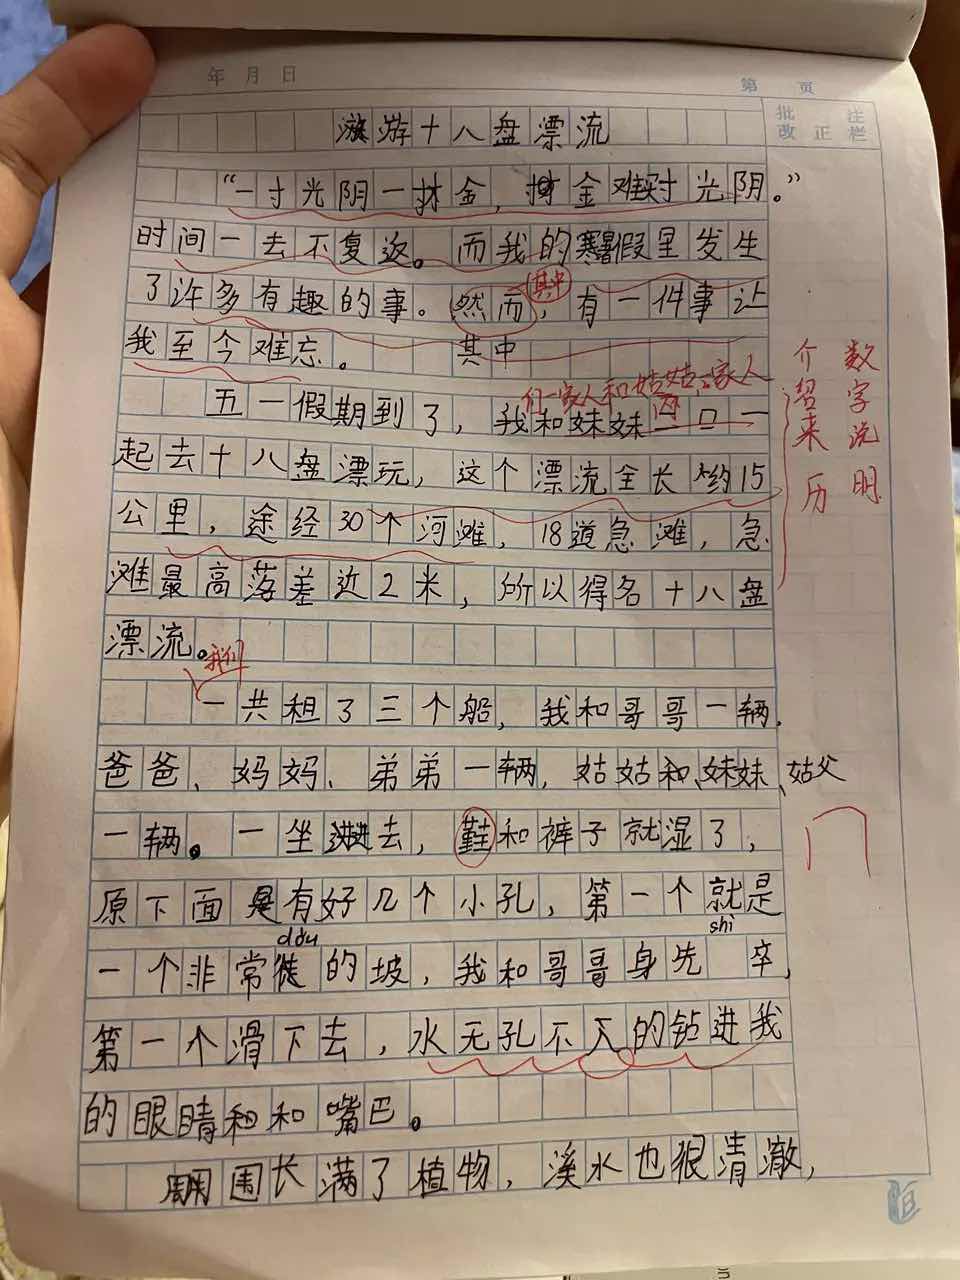 年 月 日
第 页
批改 正 注栏
游十八盘漂流
“一寸光阴一寸金，寸金难买寸光阴。”
时间一去不复返。而我的暑假里发生
了许多有趣的事。然而，有一件事让
其中
我至今难忘。 其中
们一家人和姑姑一家人
五一假期到了，我和妹妹四口一
起去十八盘漂玩，这个漂流全长约15
公里，途经30个河滩，18道急滩，急
滩最高落差近2米，所以得名十八盘
漂流。
我们
一共租了三个船，我和哥哥一辆.
爸爸、妈妈、弟弟一辆，姑姑和、妹妹、姑父
一辆。一坐进去，鞋和裤子就湿了，
原下面是有好几个小孔，第一个就是
dǒu shi
一个非常徒的坡，我和哥哥身先 卒，
第一个滑下去，水无孔不入的钻进我
的眼睛和和嘴巴。
周围长满了植物，溪水也很清澈，
数字说明
介绍来历